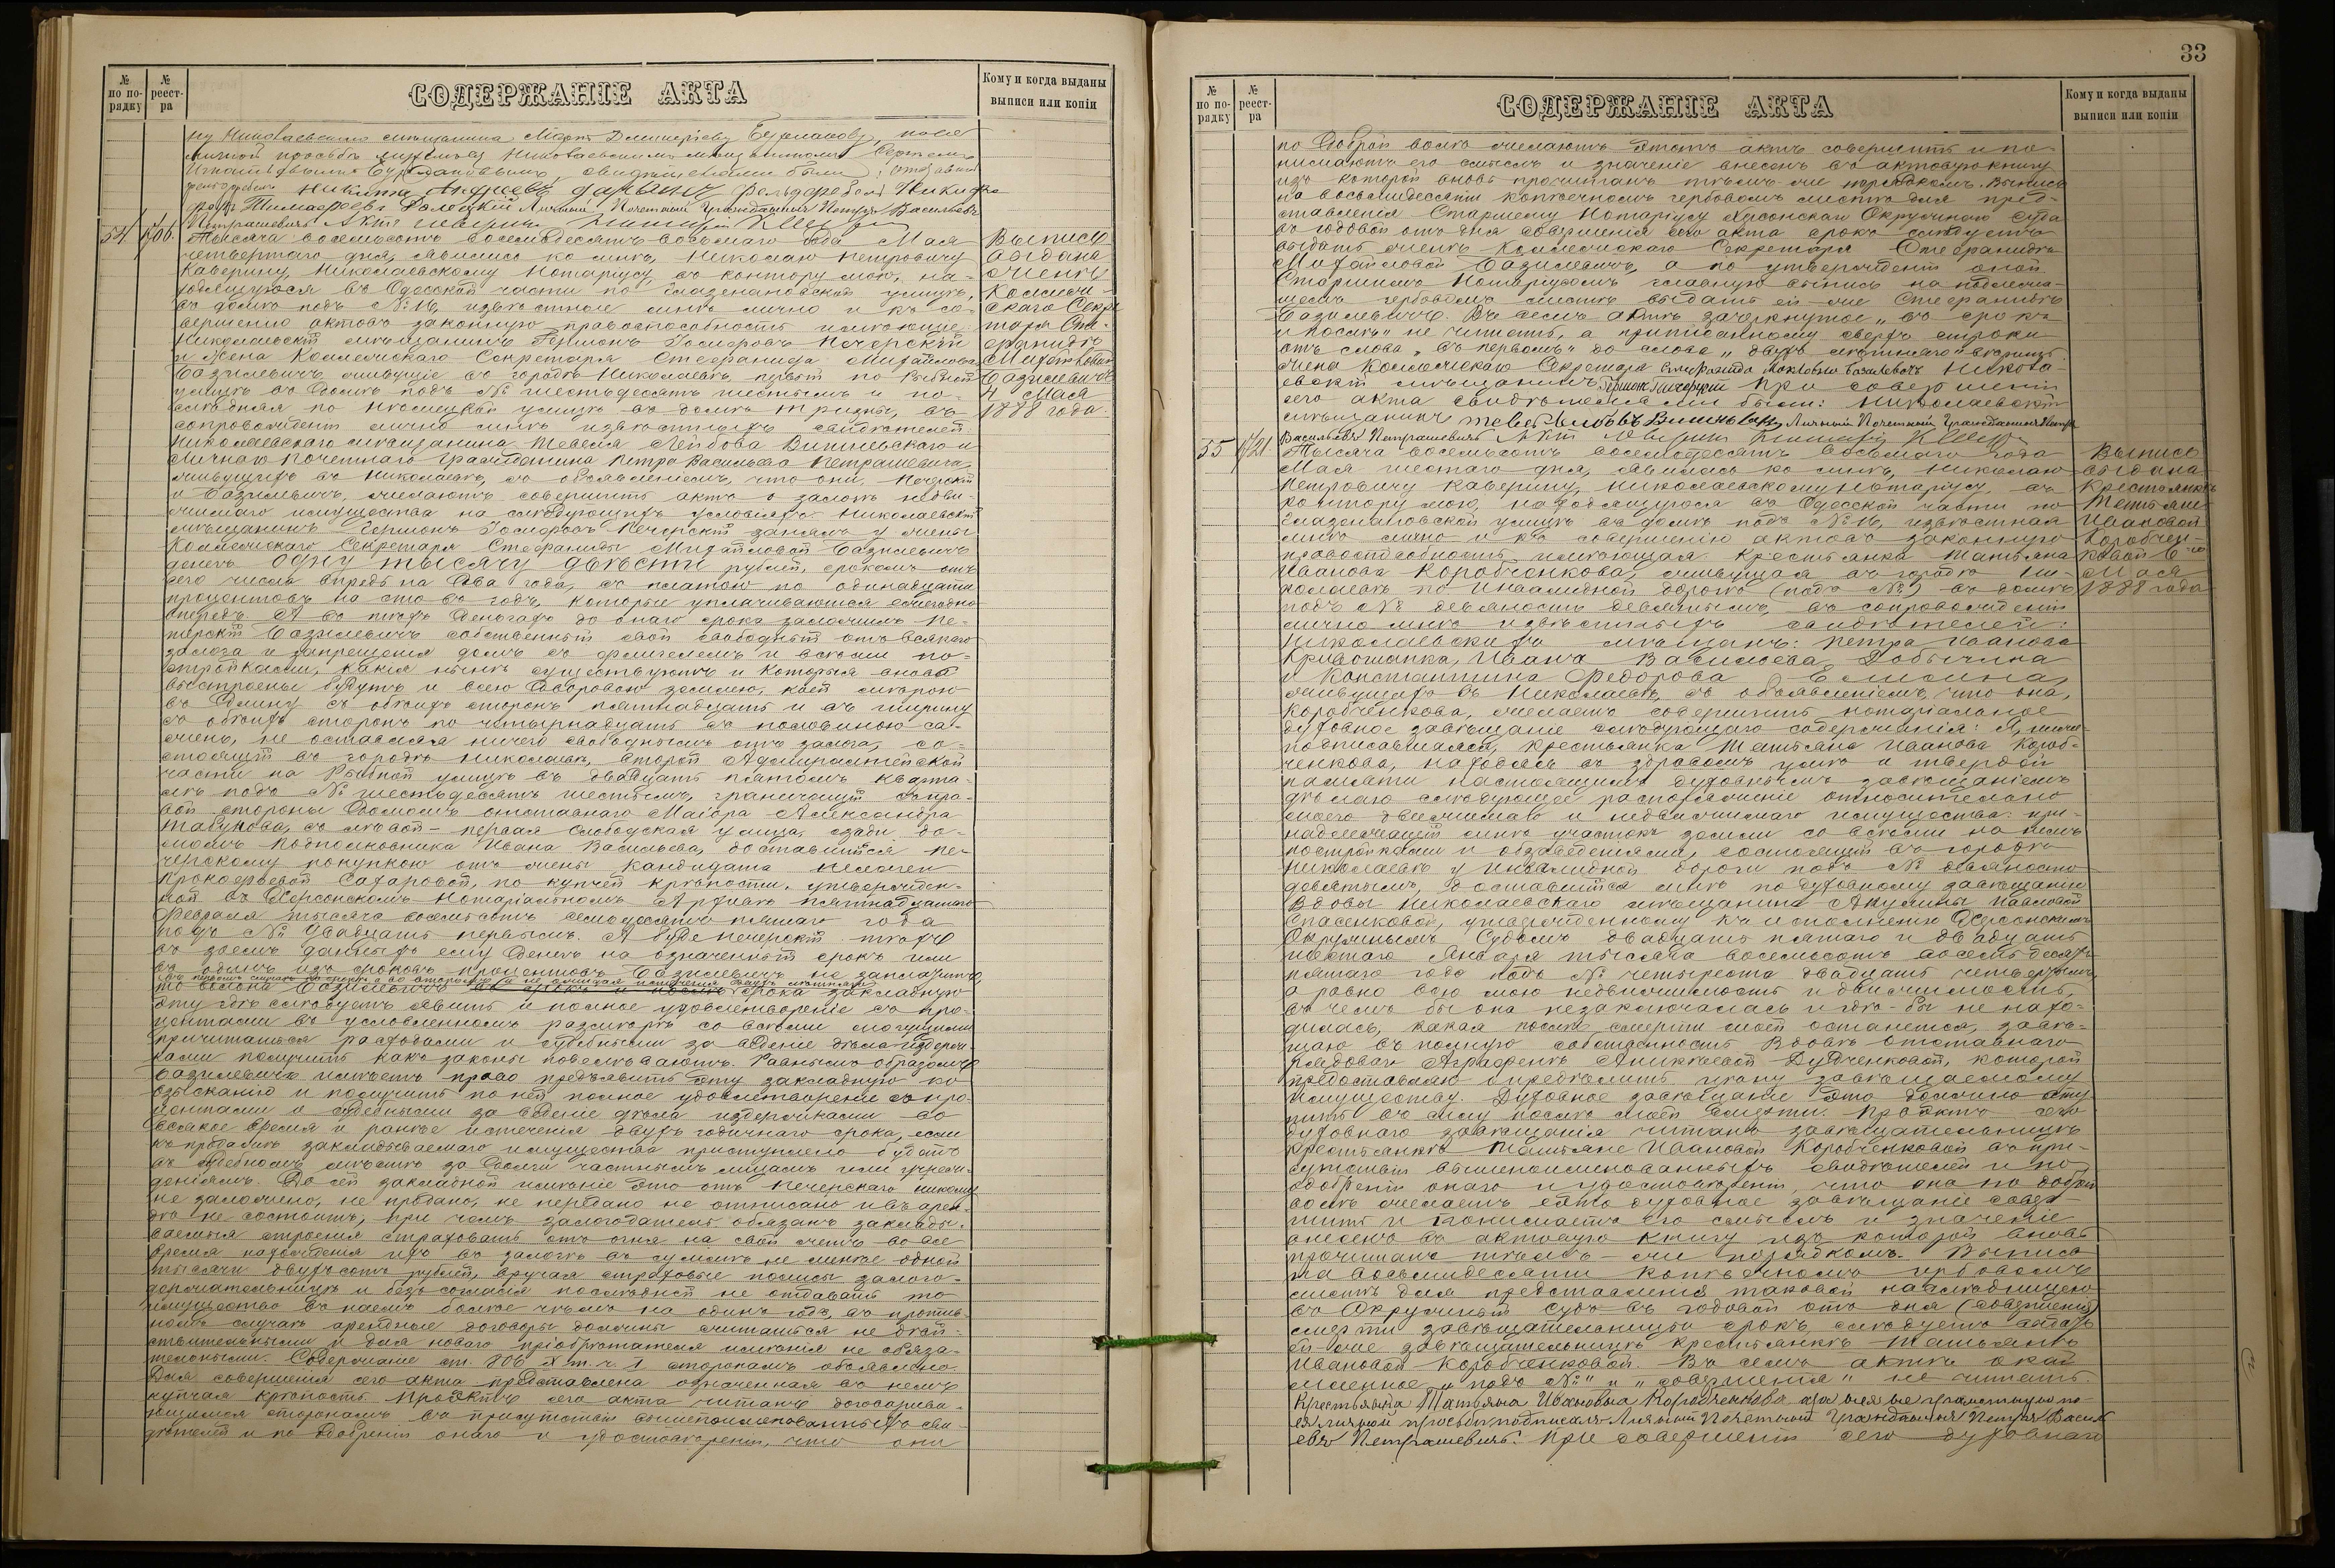 № по порядку
№ реестра
СОДЕРЖАНІЕ АКТА
Кому и когда выданы выписи или копіи
54
1706
Тысяча восемьсотъ восемьдесятъ восьмаго года Мая
четвертаго дня, явились ко мнѣ, Николаю Петровичу
Каверину, Николаевскому Нотаріусу, въ контору мою, на-
ходящуюся въ Одесской части по Глазенаповской улицѣ,
въ домѣ подъ № 16, извѣстные мнѣ лично и къ со-
вершенію актовъ законную правоспособность имѣющіе:
Николаевскій мѣщанинъ Гершонъ Печерскій
и жена Коллежскаго Секретаря Стефанида Михайлова
Базилевичъ, живущіе въ городѣ Николаевѣ, первый по Рыбной
улицѣ въ домѣ подъ № шестьдесятъ шестымъ и по-
слѣдняя по улицѣ въ домѣ въ
сопровожденіи лично мнѣ извѣстныхъ свидѣтелей:
Николаевскаго мѣщанина Тевеля Лейбова Вишневскаго и
Личнаго Почетнаго Гражданина Петра Васильева Петрашевича,
живущихъ въ Николаевѣ, съ объявленіемъ, что они, Печерскій
и Базилевичъ, желаютъ совершить актъ о залогѣ недви-
жимаго имущества на слѣдующихъ условіяхъ: Николаевскій
мѣщанинъ Гершонъ Печерскій занялъ у жены
Коллежскаго Секретаря Стефаниды Михайловой Базилевичъ
денегъ одну тысячу двѣсти рублей, срокомъ отъ
сего числа впредь на два года, съ платою по одинадцати
процентовъ на сто въ годъ, которые уплачиваются ежегодно
впередъ. А въ тѣхъ деньгахъ до онаго срока заложилъ Пе-
черскій Базилевичъ собственный свой свободный отъ всякаго
залога и запрещенія домъ съ флигелемъ и всѣми по-
стройками, какія нынѣ существуютъ и которыя вновь
выстроены будутъ и всею дворовою землею, коей мѣрою
въ длину съ обѣихъ сторонъ пятнадцать и въ ширину
съ обѣихъ сторонъ по четырнадцать съ половиною са-
жень, не оставляя ничего свободнымъ отъ залога, со-
стоящій въ городѣ Николаевѣ, второй Адмиралтейской
части на Рыбной улицѣ въ двадцать пятомъ кварта-
лѣ подъ № шестьдесятъ шестымъ, граничащій съ пра-
вой стороны домомъ отставнаго Маіора Александра
съ лѣвой - первая Слободская улица, сзади до-
момъ Подполковника Ивана Васильева, доставшійся Пе-
черскому покупкою отъ жены Кандидата
Прокофьевой Сахаровой, по купчей крѣпости, утвержден-
ной въ Херсонскомъ Нотаріальномъ Архивѣ пятнадцатаго
Февраля тысяча восемьсотъ семьдесятъ пятаго года
подъ № двадцать первымъ. А буде Печерскій тѣхъ
въ заемъ данныхъ ему денегъ на означенный срокъ или
въ одинъ изъ сроковъ процентовъ Базилевичъ не заплатитъ,
то вольна Базилевичъ срока закладную
эту гдѣ слѣдуетъ явить и полное удовлетвореніе съ про-
центами въ условленномъ размѣрѣ со всѣми могущими
причитаться расходами и судебными за веденіе дѣла издерж-
ками получить какъ законы повелѣваютъ. Равнымъ образомъ
Базилевичъ имѣетъ право предъявить эту закладную ко
взысканію и получить по ней полное удовлетвореніе съ про-
центами и судебными за веденіе дѣла издержками во
всякое время и ранѣе истеченія двухъ годичнаго срока, если
къ продажѣ закладываемаго имущества приступлено будетъ
въ судебномъ мѣстѣ за долги частнымъ лицамъ или учреж-
деніямъ. До сей закладной имѣніе это отъ Печерскаго никому
не заложено, не продано, не передано не отписано и въ арен-
дѣ не состоитъ, при чемъ залогодатель обязанъ заклады-
ваемыя строенія страховать отъ огня на свой счетъ во все
время нахожденія ихъ въ залогѣ въ суммѣ не менѣе одной
тысячи двухъ сотъ рублей, вручая страховые полисы залого-
держательницѣ и безъ согласія послѣдней не отдавать то
имущество въ наемъ болѣе чѣмъ на одинъ годъ, въ против-
номъ случаѣ арендные договоры должны считаться не дѣй-
ствительными и для новаго пріобрѣтателя имѣнія не обяза-
тельными. Содержаніе ст. 206 X т. ч. 1 сторонамъ объявлено.
Для совершенія сего акта представлена означенная въ немъ
купчая крѣпость. Проэктъ сего акта читанъ договарива-
ющимся сторонамъ въ присутствіи вышепоименованныхъ сви-
дѣтелей и по одобреніи онаго и удостовѣреніи, что они
Выпись
выдана
женѣ
Коллеж-
скаго Секре-
таря Сте-
фанидѣ
Михайловой
Базилевичъ
4 Мая
1888 года.
33
№ по порядку
№ реестра
СОДЕРЖАНІЕ АКТА
Кому и когда выданы выписи или копіи
по доброй волѣ желаютъ этотъ актъ совершить и по-
нимаютъ его смыслъ и значеніе внесенъ въ актовую книгу
изъ которой вновь прочитанъ тѣмъ-же порядкомъ. Выпись
на восьмидесяти копѣечномъ гербовомъ листѣ для пред-
ставленія Старшему Нотаріусу Херсонскаго Окружнаго Суда
въ годовой отъ дня совершенія сего акта срокъ слѣдуетъ
выдать женѣ Коллежскаго Секретаря Стефанидѣ
Михайловой Базилевичъ, а по утвержденіи оной
Старшимъ Нотаріусомъ главную выпись на подлежа-
щемъ гербовомъ листѣ выдать ей-же Стефанидѣ
Базилевичъ. Въ семъ актѣ зачеркнутое „въ срокъ
и послѣ" не читать, а приписанному сверхъ строки
отъ слова „въ первомъ" до слова „двухъ лѣтняго" вѣрить.
Жена Коллежскаго Секретаря Стефанида Базилевичъ Никола-
евскій мѣщанинъ Гершонъ Печерскій При совершеніи
сего акта свидѣтелями были: Николаевскій
мѣщанинъ Тевель Вишневскій Личный Почетный Гражданинъ Петръ
Васильевъ Петрашевичъ
55
1721
Тысяча восемьсотъ восемьдесятъ восьмаго года
Мая шестаго дня, явилась ко мнѣ, Николаю
Петровичу Каверину, Николаевскому Нотаріусу, въ
контору мою, находящуюся въ Одесской части по
Глазенаповской улицѣ въ домѣ подъ № 16, извѣстная
мнѣ лично и къ совершенію актовъ законную
правоспособность имѣющая крестьянка Татьяна
Иванова Коробченкова, живущая въ городѣ Ни-
колаевѣ по Инвалидной дорогѣ (подъ №) въ домѣ
подъ № девяносто девятымъ, въ сопровожденіи
лично мнѣ извѣстныхъ свидѣтелей:
Николаевскихъ мѣщанъ: Петра Иванова
Кривошапка, Ивана Васильева Добычина
и Константина Федорова Елисина,
живущихъ въ Николаевѣ, съ объявленіемъ, что она,
Коробченкова, желаетъ совершить нотаріальное
духовное завѣщаніе слѣдующаго содержанія: Я, ниже-
подписавшаяся, крестьянка Татьяна Иванова Короб-
ченкова, находясь въ здравомъ умѣ и твердой
памяти настоящимъ духовнымъ завѣщаніемъ
дѣлаю слѣдующее распоряженіе относительно
моего движимаго и недвижимаго имущества: при-
надлежащій мнѣ участокъ земли со всѣми на немъ
постройками и обзаведеніями, состоящій въ городѣ
Николаевѣ у Инвалидной дороги подъ № девяносто
девятымъ, доставшійся мнѣ по духовному завѣщанію
Вдовы Николаевскаго мѣщанина Акулины Павловой
Спасенковой, утвержденному къ исполненію Херсонскимъ
Окружнымъ Судомъ двадцать пятаго и двадцать
шестаго Января тысяча восемьсотъ восемьдесятъ
пятаго года подъ № четыреста двадцать четвертымъ,
а равно всю мою недвижимость и движимость,
въ чемъ бы она незаключалась и гдѣ-бы не нахо-
дилась, какая послѣ смерти моей останется, завѣ-
щаю въ полную собственность Вдовѣ отставнаго
рядоваго Аграфенѣ Аникѣевой Дудченковой, которой
предоставляю опредѣлить цѣну завѣщаемому
имуществу. Духовное завѣщаніе это должно всту-
пить въ силу послѣ моей смерти. Проэктъ сего
духовнаго завѣщанія читанъ завѣщательницѣ
крестьянкѣ Татьянѣ Ивановой Коробченковой въ при-
сутствіи вышепоименованныхъ свидѣтелей и по
одобреніи онаго и удостовѣреніи, что она по доброй
волѣ желаетъ это духовное завѣщаніе совер-
шить и понимаетъ его смыслъ и значеніе
внесенъ въ актовую книгу изъ которой вновь
прочитанъ тѣмъ-же порядкомъ. Выпись
на восьмидесяти копѣечномъ гербовомъ
листѣ для представленія таковой наслѣдницею
въ Окружный Судъ въ годовой отъ дня (совершенія)
смерти завѣщательницы срокъ слѣдуетъ выдать
ей-же завѣщательницѣ крестьянкѣ Татьянѣ
Ивановой Коробченковой. Въ семъ актѣ окай-
мленное „подъ №" и „совершенія" не читать.
Крестьянка Татьяна Ивановна Коробченкова а за нея не грамотную по
ея личной просьбѣ подписался Личный Почетный Гражданинъ Петръ Василь-
евъ Петрашевичъ. При совершеніи сего духовнаго
Выпись
выдана
крестьянкѣ
Татьянѣ
Ивановой
Коробчен-
ковой 6го
Мая
1888 года